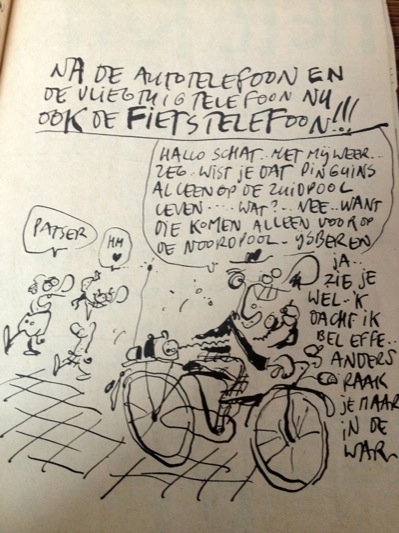 NA DE AUTOTELEFOON EN
DE VLIEGTUIGTELEFOON NU
OOK DE FIETSTELEFOON!!!
HALLO SCHAT.. MET MIJ WEER..
ZEG.. WIST JE DAT PINGUINS
ALLEEN OP DE ZUIDPOOL
LEVEN.... WAT?.. NEE.. WANT
DIE KOMEN ALLEEN VOOR OP
DE NOORDPOOL - IJSBEREN
PATSER
HM
JA..
ZIE JE
WEL-'K
DACHT IK
BEL EFFE..
ANDERS
RAAK
JE MAAR
IN DE
WAR